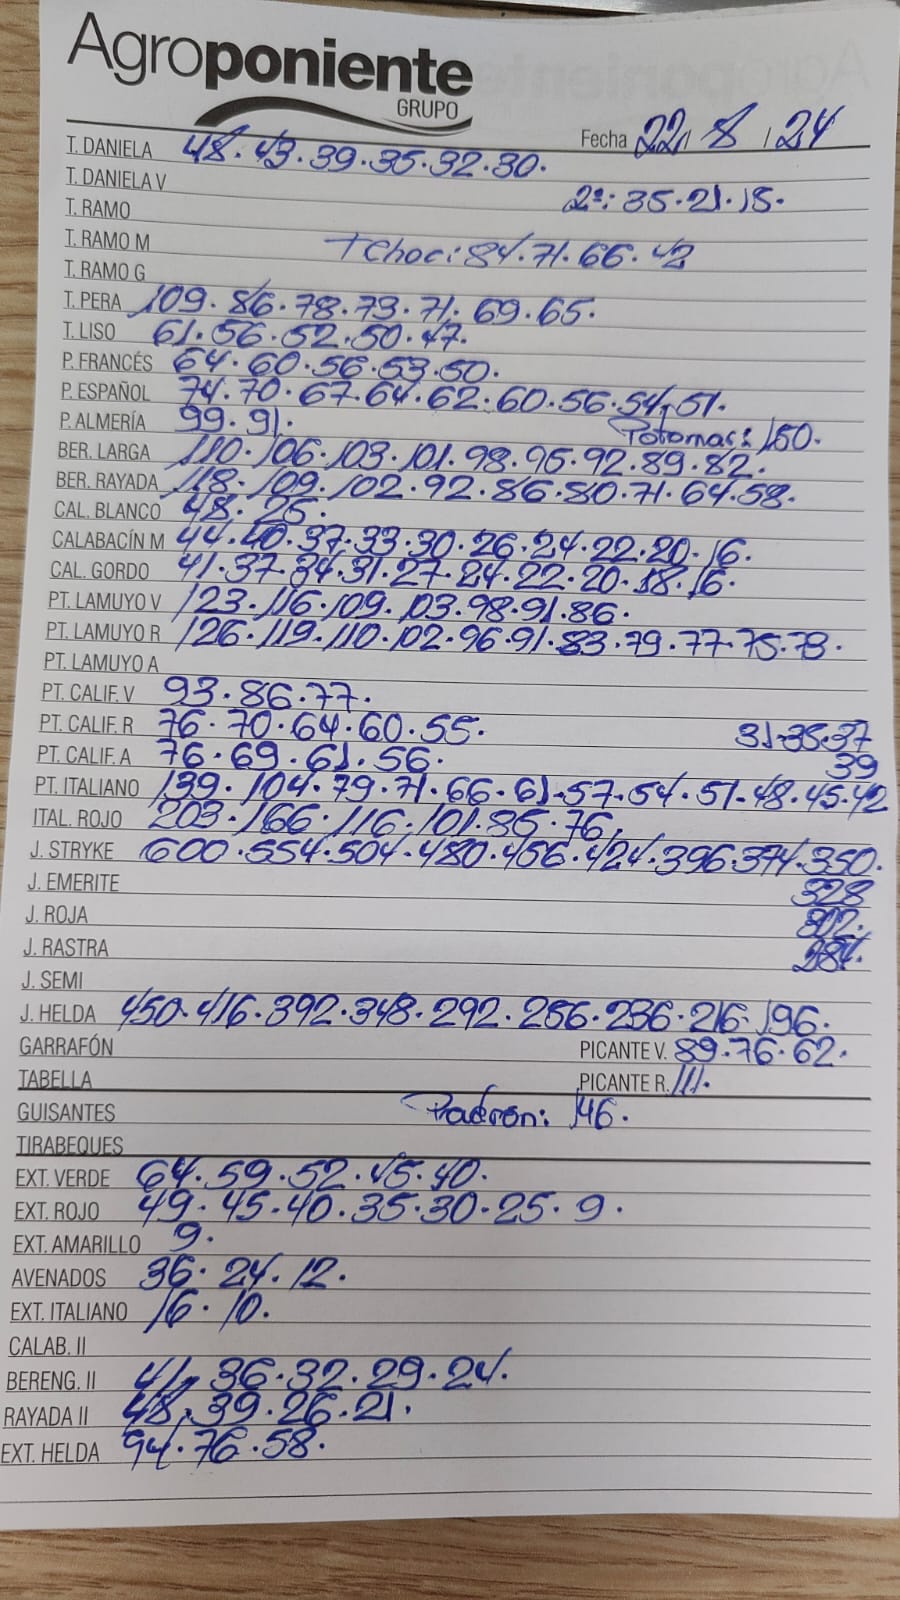 Agroponiente
GRUPO
Fecha 22 / 8 / 24
T. DANELA 48. 43. 39. 35. 32. 30.
T. DANIELA V 2ª: 35. 21. 15.
T. RAMO
T. RAMO M T Choc: 84. 71. 66. 42
T. RAMO G
T. PERA 109. 86. 78. 73. 71. 69. 65.
T. LISO 61. 56. 52. 50. 47.
P. FRANCÉS 64. 60. 56. 53. 50.
P. ESPAÑOL 74. 70. 67. 64. 62. 60. 56. 54. 51.
P. ALMERÍA 99. 91. Potomac: 150.
BER. LARGA 110. 106. 103. 101. 98. 95. 92. 89. 82.
BER. RAYADA 118. 109. 102. 92. 86. 80. 71. 64. 58.
CAL. BLANCO 48. 25.
CALABACÍN M 44. 40. 37. 33. 30. 26. 24. 22. 20. 16.
CAL. GORDO 41. 37. 34. 31. 27. 24. 22. 20. 18. 16.
PT. LAMUYO V 123. 116. 109. 103. 98. 91. 86.
PT. LAMUYO R 126. 119. 110. 102. 96. 91. 83. 79. 77. 75. 73.
PT. LAMUYO A
PT. CALIF. V 93. 86. 77.
PT. CALIF. R 76. 70. 64. 60. 55. 31. 35. 37
PT. CALIF. A 76. 69. 61. 56. 39
PT. ITALIANO 139. 104. 79. 71. 66. 61. 57. 54. 51. 48. 45. 42
ITAL. ROJO 203. 166. 116. 101. 85. 76.
J. STRYKE 600. 554. 504. 480. 456. 424. 396. 374. 350.
J. EMERITE 328
J. ROJA 302.
J. RASTRA 284.
J. SEMI
J. HELDA 450. 416. 392. 348. 292. 256. 236. 216. 196.
GARRAFÓN PICANTE V. 89. 76. 62.
TABELLA PICANTE R. 111.
GUISANTES Padron: 146.
TIRABEQUES
EXT. VERDE 64. 59. 52. 45. 40.
EXT. ROJO 49. 45. 40. 35. 30. 25. 9.
EXT. AMARILLO 9.
AVENADOS 36. 24. 12.
EXT. ITALIANO 16. 10.
CALAB. II
BERENG. II 41. 36. 32. 29. 24.
RAYADA II 48. 39. 26. 21.
EXT. HELDA 94. 76. 58.